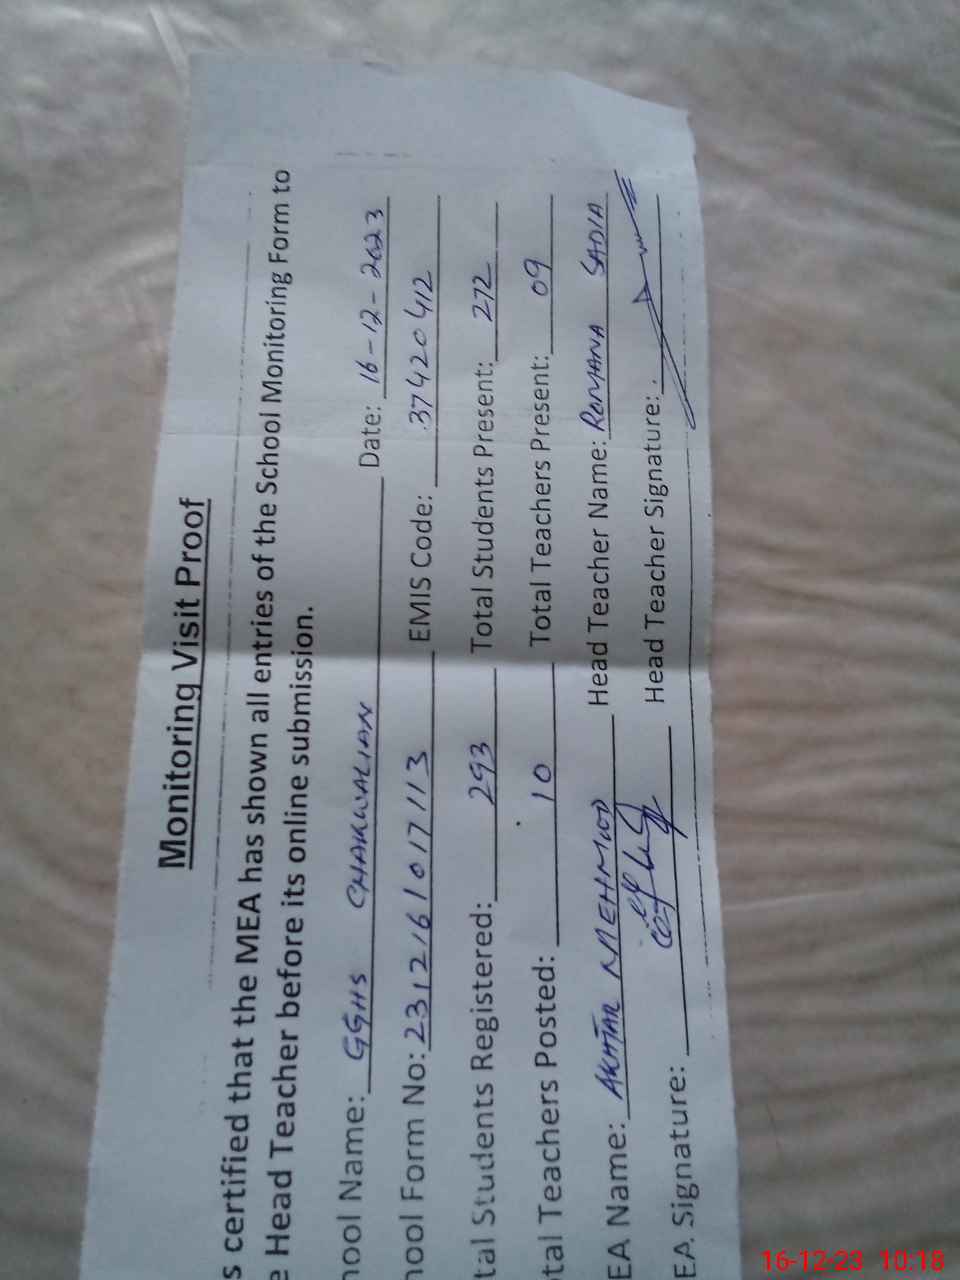 Monitoring Visit Proof
s certified that the MEA has shown all entries of the School Monitoring Form to
e Head Teacher before its online submission.
hool Name: GGHS CHAKWALIAN Date: 16-12-2023
hool Form No: 2312161017113 EMIS Code: 37420412
tal Students Registered: 293 Total Students Present: 272
tal Teachers Posted: 10 Total Teachers Present: 09
EA Name: AKHTAR MEHMOOD Head Teacher Name: ROMANA SADIA
EA Signature: Head Teacher Signature:
16-12-23 10:18